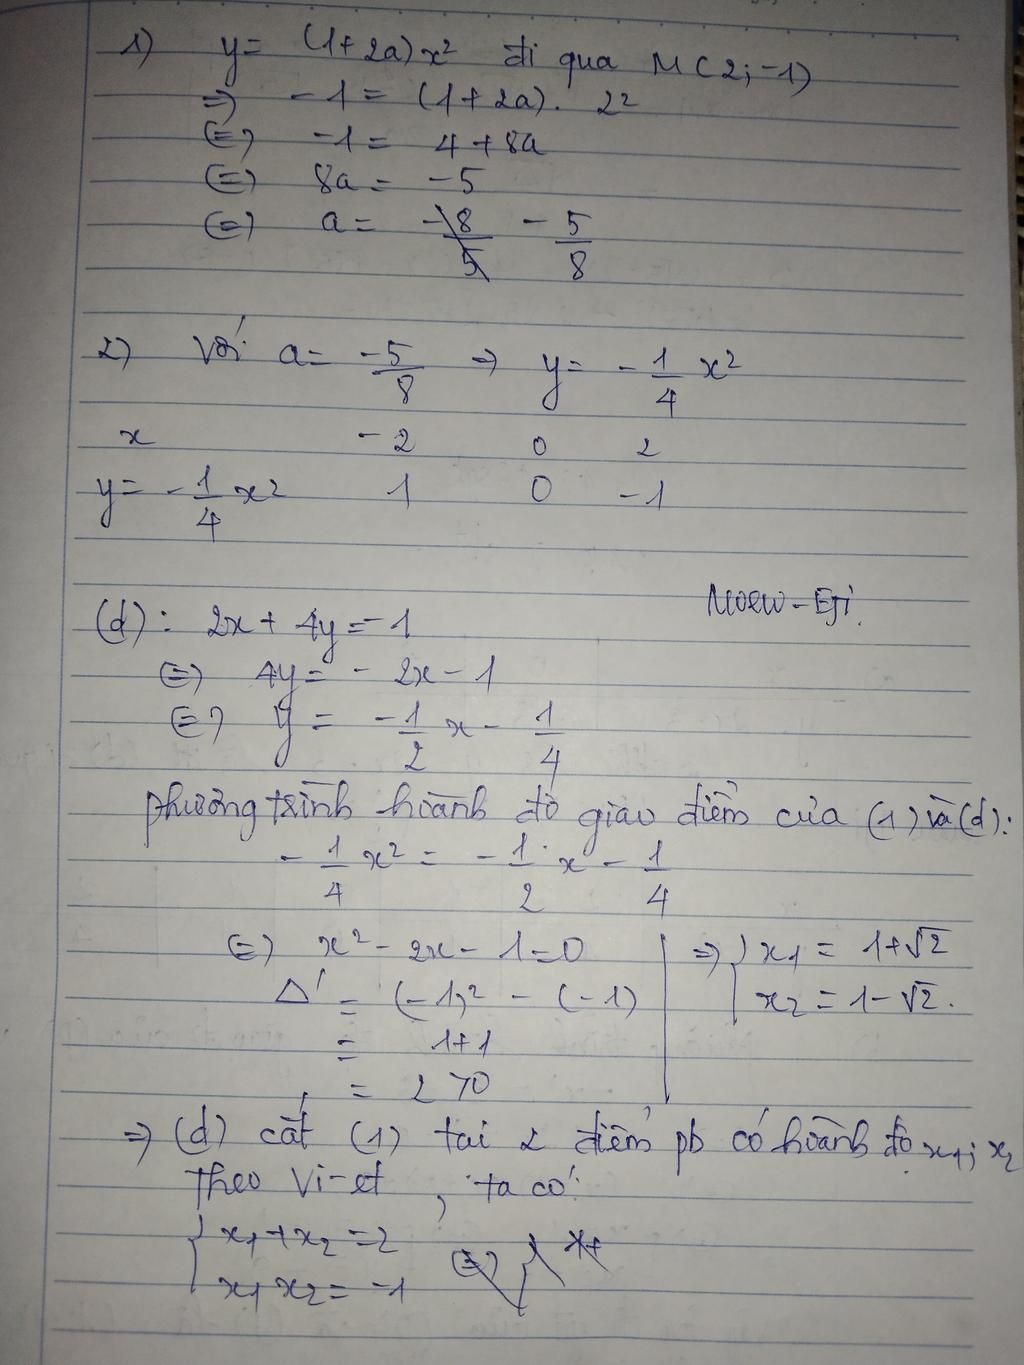 1) y = (1+2a)x² đi qua M(2;-1)
=> -1 = (1+2a). 2²
(=) -1 = 4+8a
(=) 8a = -5
(=) a = -8/5 -5/8
2) Với a = -5/8 => y = -1/4 x²
x -2 0 2
y = -1/4 x² 1 0 -1
Moew-Eji.
(d): 2x + 4y = -1
(=) 4y = -2x - 1
(=) y = -1/2 x - 1/4
phương trình hoành độ giao điểm của (1) và (d):
-1/4 x² = -1/2 x - 1/4
(=) x² - 2x - 1 = 0 => { x1 = 1+√2
Δ' = (-1)² - (-1) x2 = 1-√2.
= 1+1
= 2 >0
=> (d) cắt (1) tại 2 điểm pb có hoành độ x1; x2
Theo Vi-et, ta có:
{ x1 + x2 = 2
x1 x2 = -1